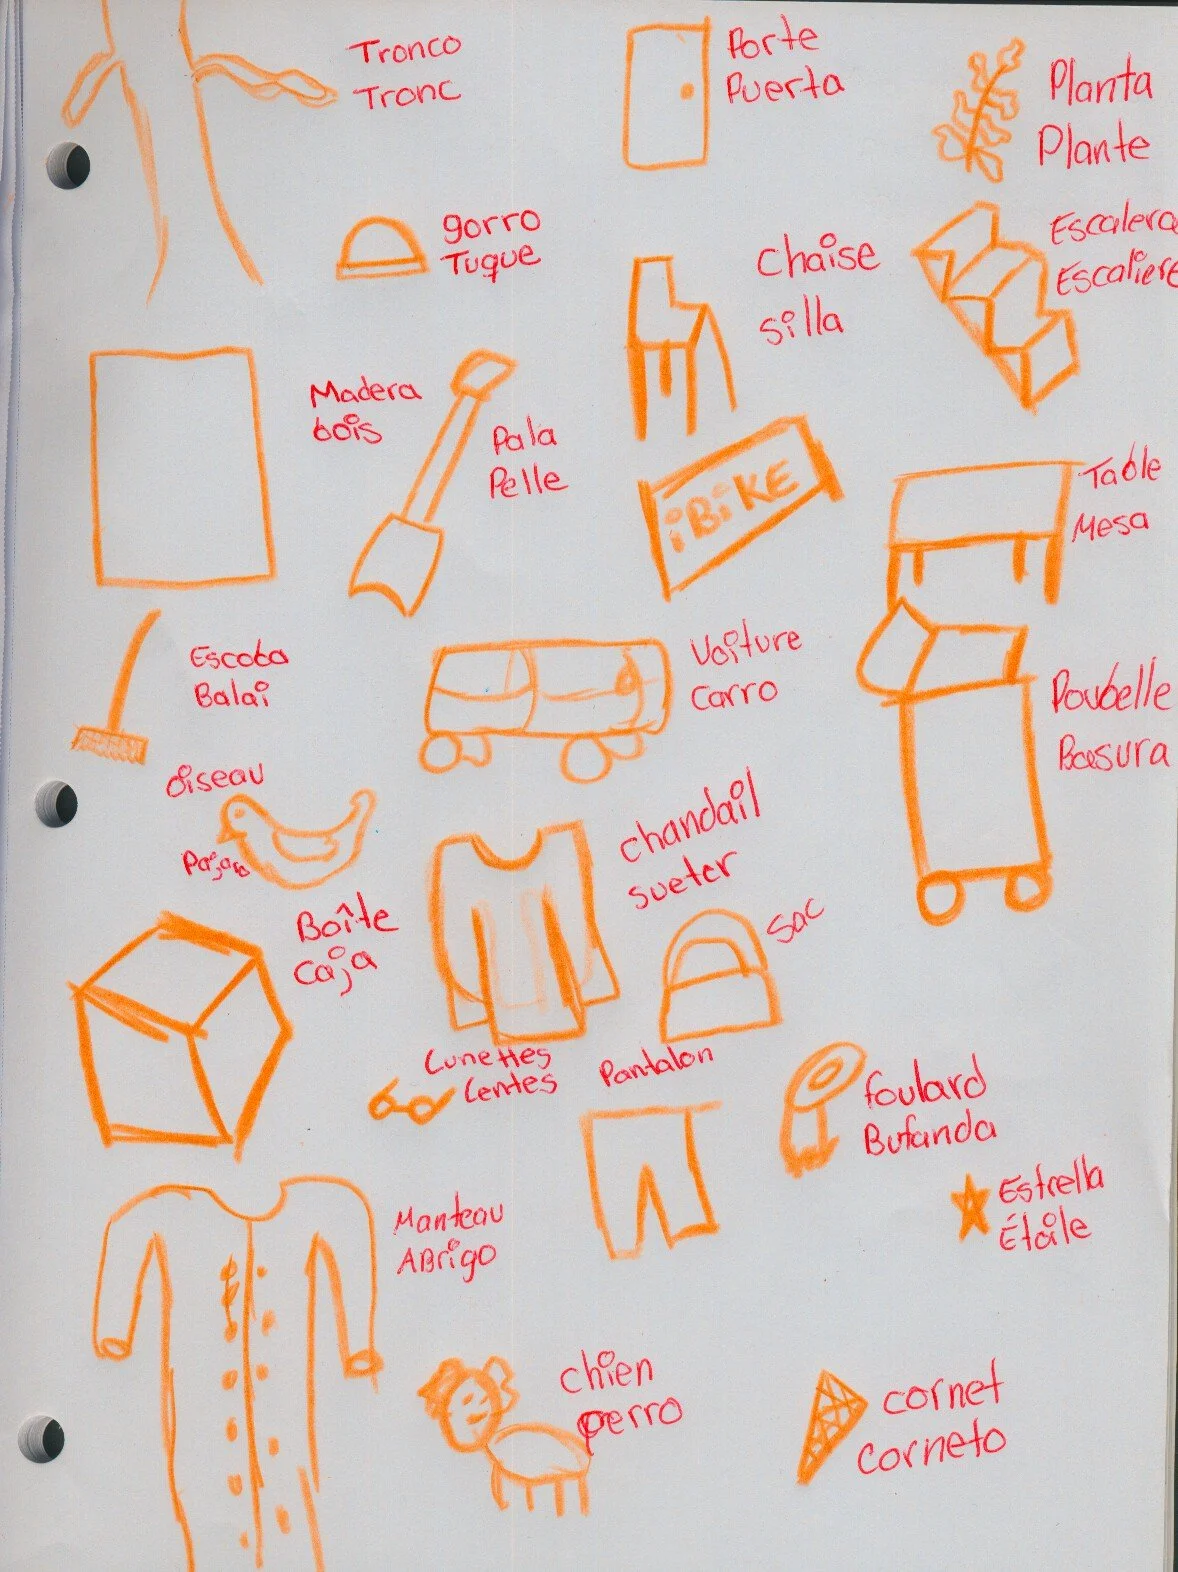 Tronco
Tronc
Porte
Puerta
Planta
Plante
gorro
Tuque
Chaise
silla
Escalera
Escaliere
Madera
bois
Pala
Pelle
iBiKE
Table
Mesa
Escoba
Balai
Voiture
Carro
Poubelle
Basura
Oiseau
Pajaro
chandail
sueter
Boîte
Caja
Sac
Lunettes
Lentes
Pantalon
foulard
Bufanda
Estrella
Étoile
Manteau
ABrigo
chien
perro
cornet
corneto